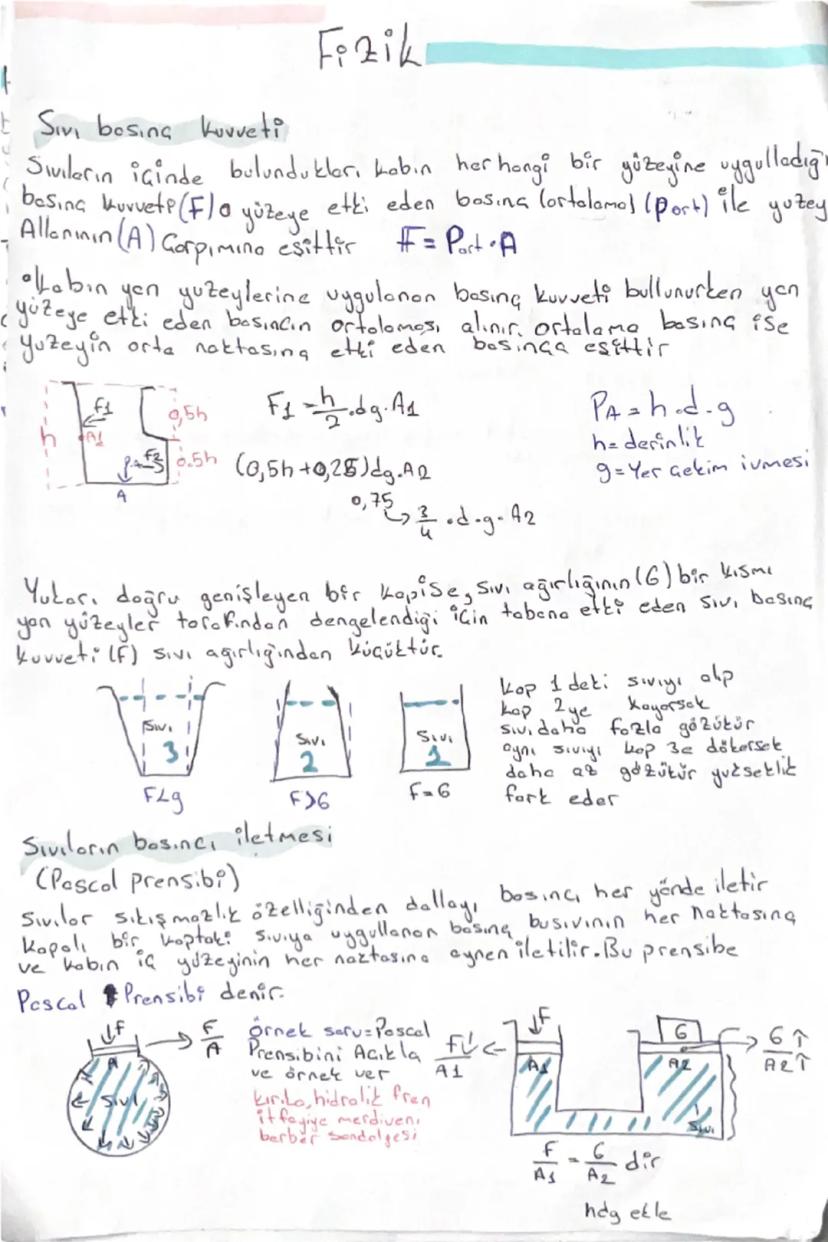 Fizik
Sıvı basınç kuvveti
Sıvıların içinde bulundukları kabın her hangi bir yüzeyine uygulladığı
basınç kuvveti (F) o yüzeye etki eden basınç (ortalama) (Port) ile yüzey
Allanının (A) Çarpımına eşittir F = Port . A
Kabın yan yüzeylerine uygulanan basınç kuvveti bullunurken yan
yüzeye etki eden basıncın ortalaması alınır. ortalama basınç ise
yüzeyin orta noktasına etki eden basınca eşittir
h F1 A1 0,5h F2 0.5h A
F1 = h/2 . dg . A1
(0,5h + 0,25) dg . A2
0,75 → 3/4 . d . g . A2
PA = h . d . g
h = derinlik
g = Yer çekim ivmesi
Yukarı doğru genişleyen bir kapise, sıvı ağırlığının (G) bir kısmı
yan yüzeyler tarafından dengelendiği için tabana etki eden sıvı basınç
kuvveti (F) sıvı ağırlığından küçüktür.
Sıvı 3 F<g
Sıvı 2 F>G
Sıvı 1 F=G
kap 1 deki sıvıyı alp
kap 2ye koyarsak
sıvı daha fazla gözükür
aynı sıvıyı kap 3e dökersek
daha az gözükür yükseklik
fark eder
Sıvıların basıncı iletmesi
(Pascal prensibi)
Sıvılar sıkışmazlık özelliğinden dallayı basıncı her yönde iletir
kapalı bir kaptaki sıvıya uygullanan basınç busıvının her noktasına
ve kabın iç yüzeyinin her noktasına aynen iletilir. Bu prensibe
Pascal Prensibi denir.
F A Sıvı F/A
örnek soru = Pascal
Prensibini Açıkla
ve örnek ver
kıriko, hidrolik fren
itfayiye merdiveni
berber sandalyesi
F↓/A1 F A1 G A2 Sıvı G↑/A2↑
F/A1 = G/A2 dir
hdg etle